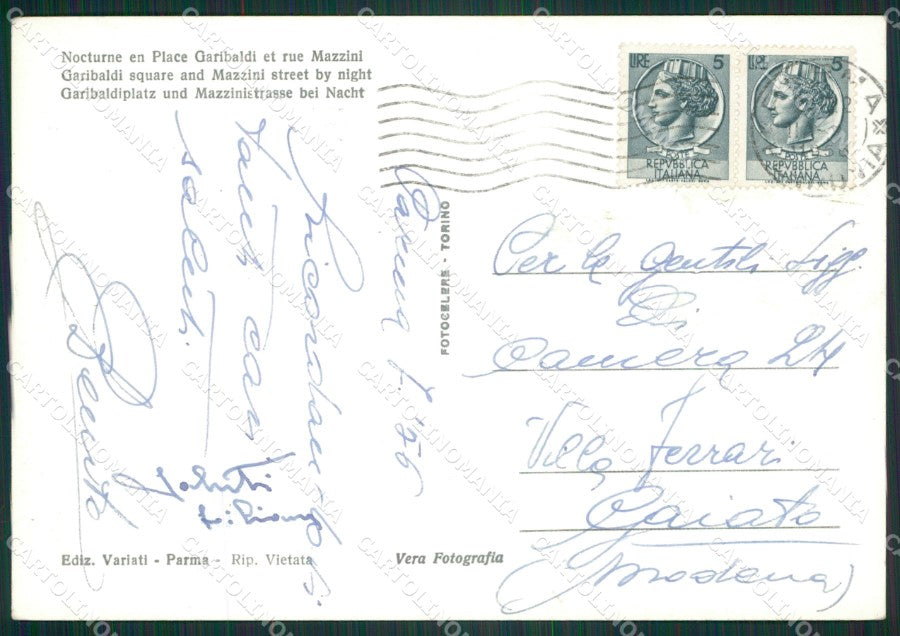 Nocturne en Place Garibaldi et rue Mazzini
Garibaldi square and Mazzini street by night
Garibaldiplatz und Mazzinistrasse bei Nacht
LIRE 5
POSTE
REPVBBLICA
ITALIANA
LIRE 5
POSTE
REPVBBLICA
ITALIANA
Parma
Ricordandovi
tanti cari
saluti.
Saluti
FOTOCELERE - TORINO
Per le gentili Sigg.
Di
Camera 24
Villa Ferrari
Gaiato
(Modena)
Ediz. Variati - Parma - Rip. Vietata
Vera Fotografia
CARTOLINOMANIA